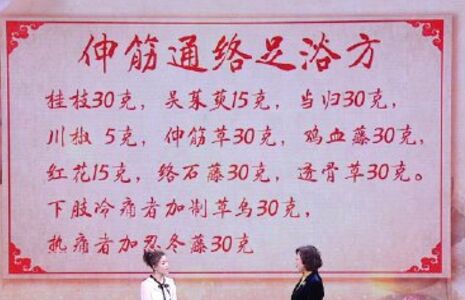 伸筋通络足浴方
桂枝30克，吴茱萸15克，当归30克，
川椒 5克，伸筋草30克，鸡血藤30克，
红花15克，络石藤30克，透骨草30克。
下肢冷痛者加制草乌30克，
热痛者加忍冬藤30克